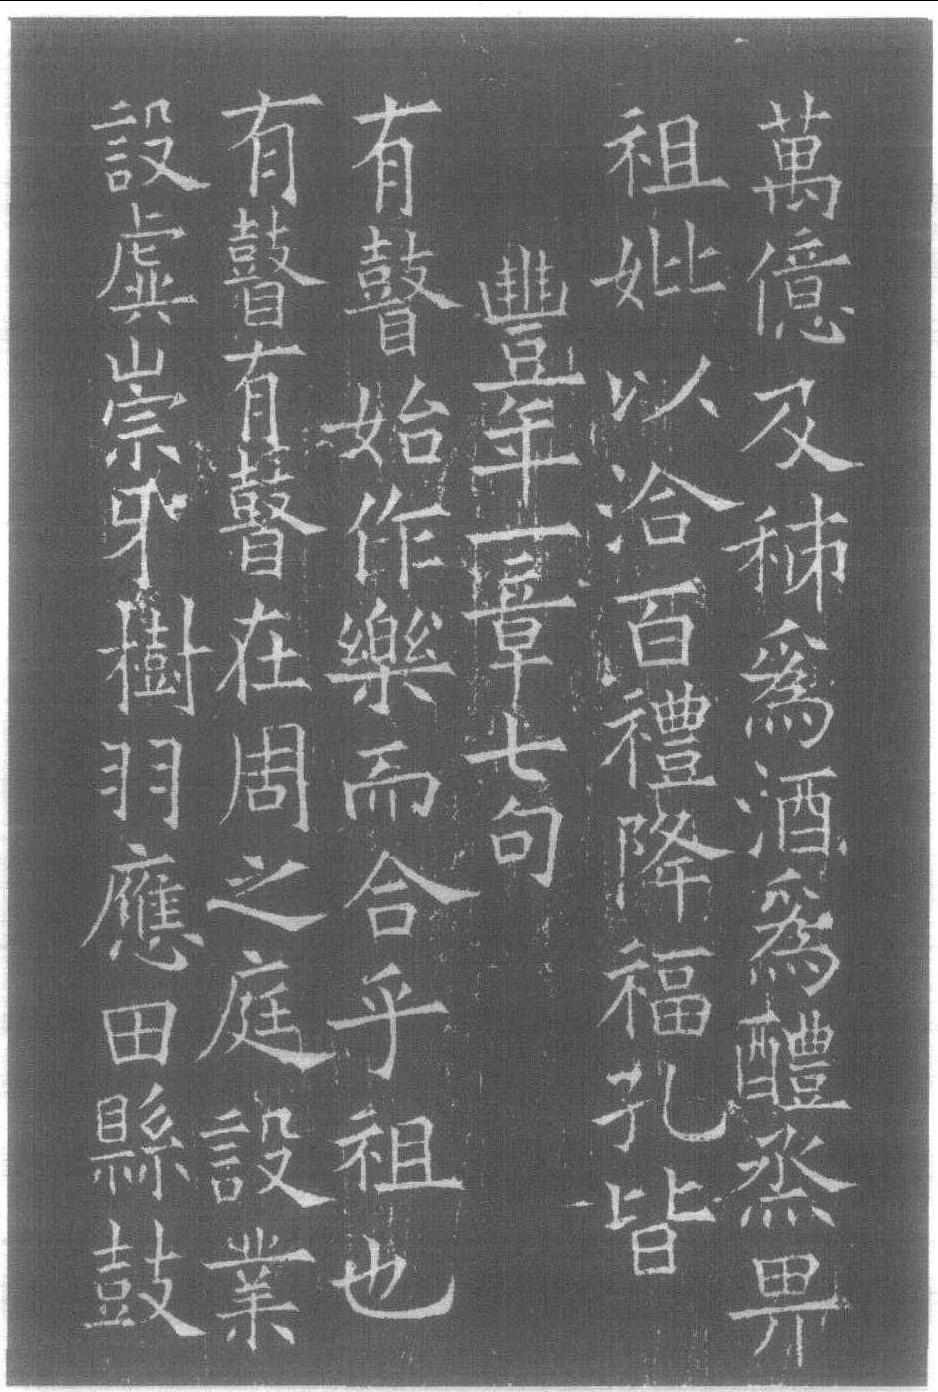 萬億及秭爲酒爲醴烝畀
祖妣以洽百禮降福孔皆
豐年一章七句
有瞽始作樂而合乎祖也
有瞽有瞽在周之庭設業
設虡崇牙樹羽應田縣鼓